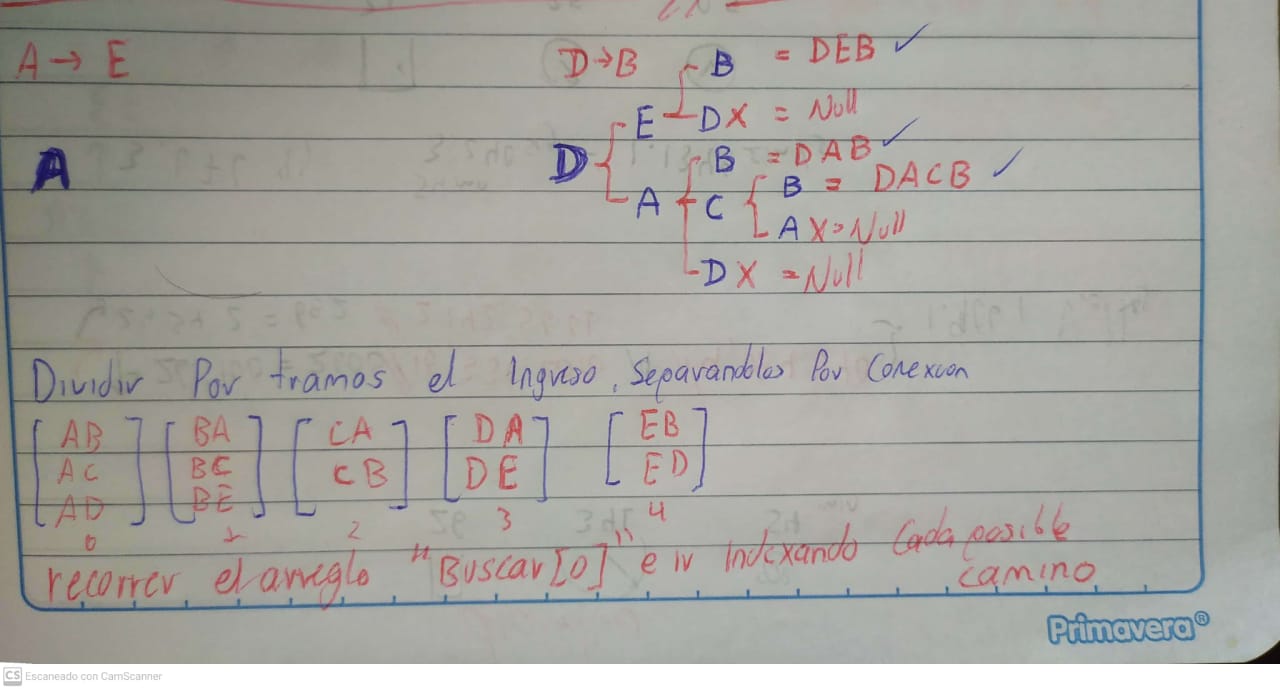 A → E
D → B
B = DEB ✓
E
DX = Null
A
D
B = DAB ✓
A
C
B = DACB ✓
A X = Null
DX = Null
Dividir Por tramos el Ingreso, Separandolos Por Conexion
[AB [BA [CA [DA [EB
AC BC CB] DE] ED]
AD] BE]
0 1 2 3 4
recorrer el arreglo "Buscar[0]" e ir Indexando Cada posible
camino
Primavera®
CS Escaneado con CamScanner